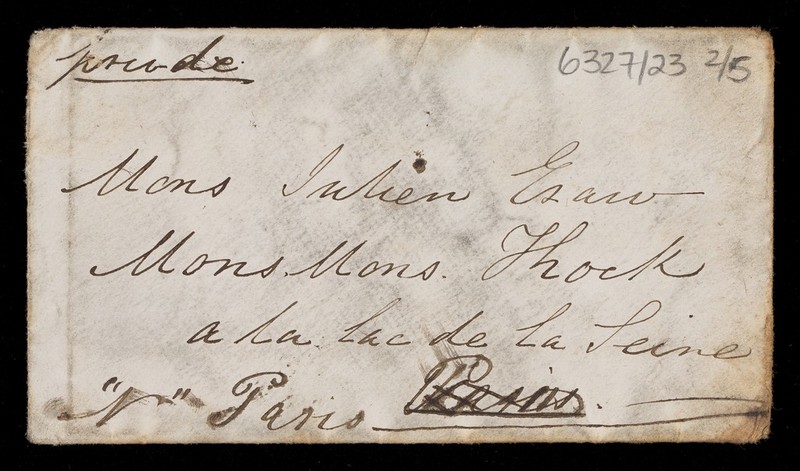 prude
6327/23 2/5
Mons Julien Esaw
Mons. Mons. Thock
a la lac de la Seine
"N" Paris